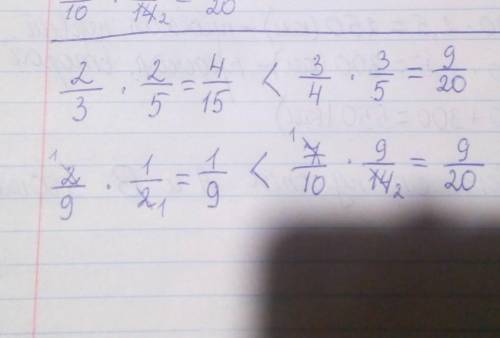 10 14 2 20
2/3 · 2/5 = 4/15 < 3/4 · 3/5 = 9/20
1 2/9 · 1/2 1 = 1/9 < 1 7/10 · 9/14 2 = 9/20